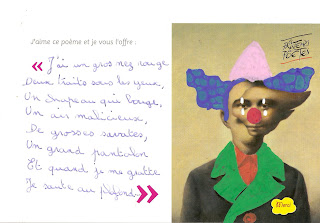 J'aime ce poème et je vous l'offre :
« J'ai un gros nez rouge
Deux traits sous les yeux,
Un chapeau qui bouge,
Un air malicieux,
De grosses savates,
Un grand pantalon
Et quand je me gratte
Je saute au plafond »
PRINTEMPS
POÈTES
Merci